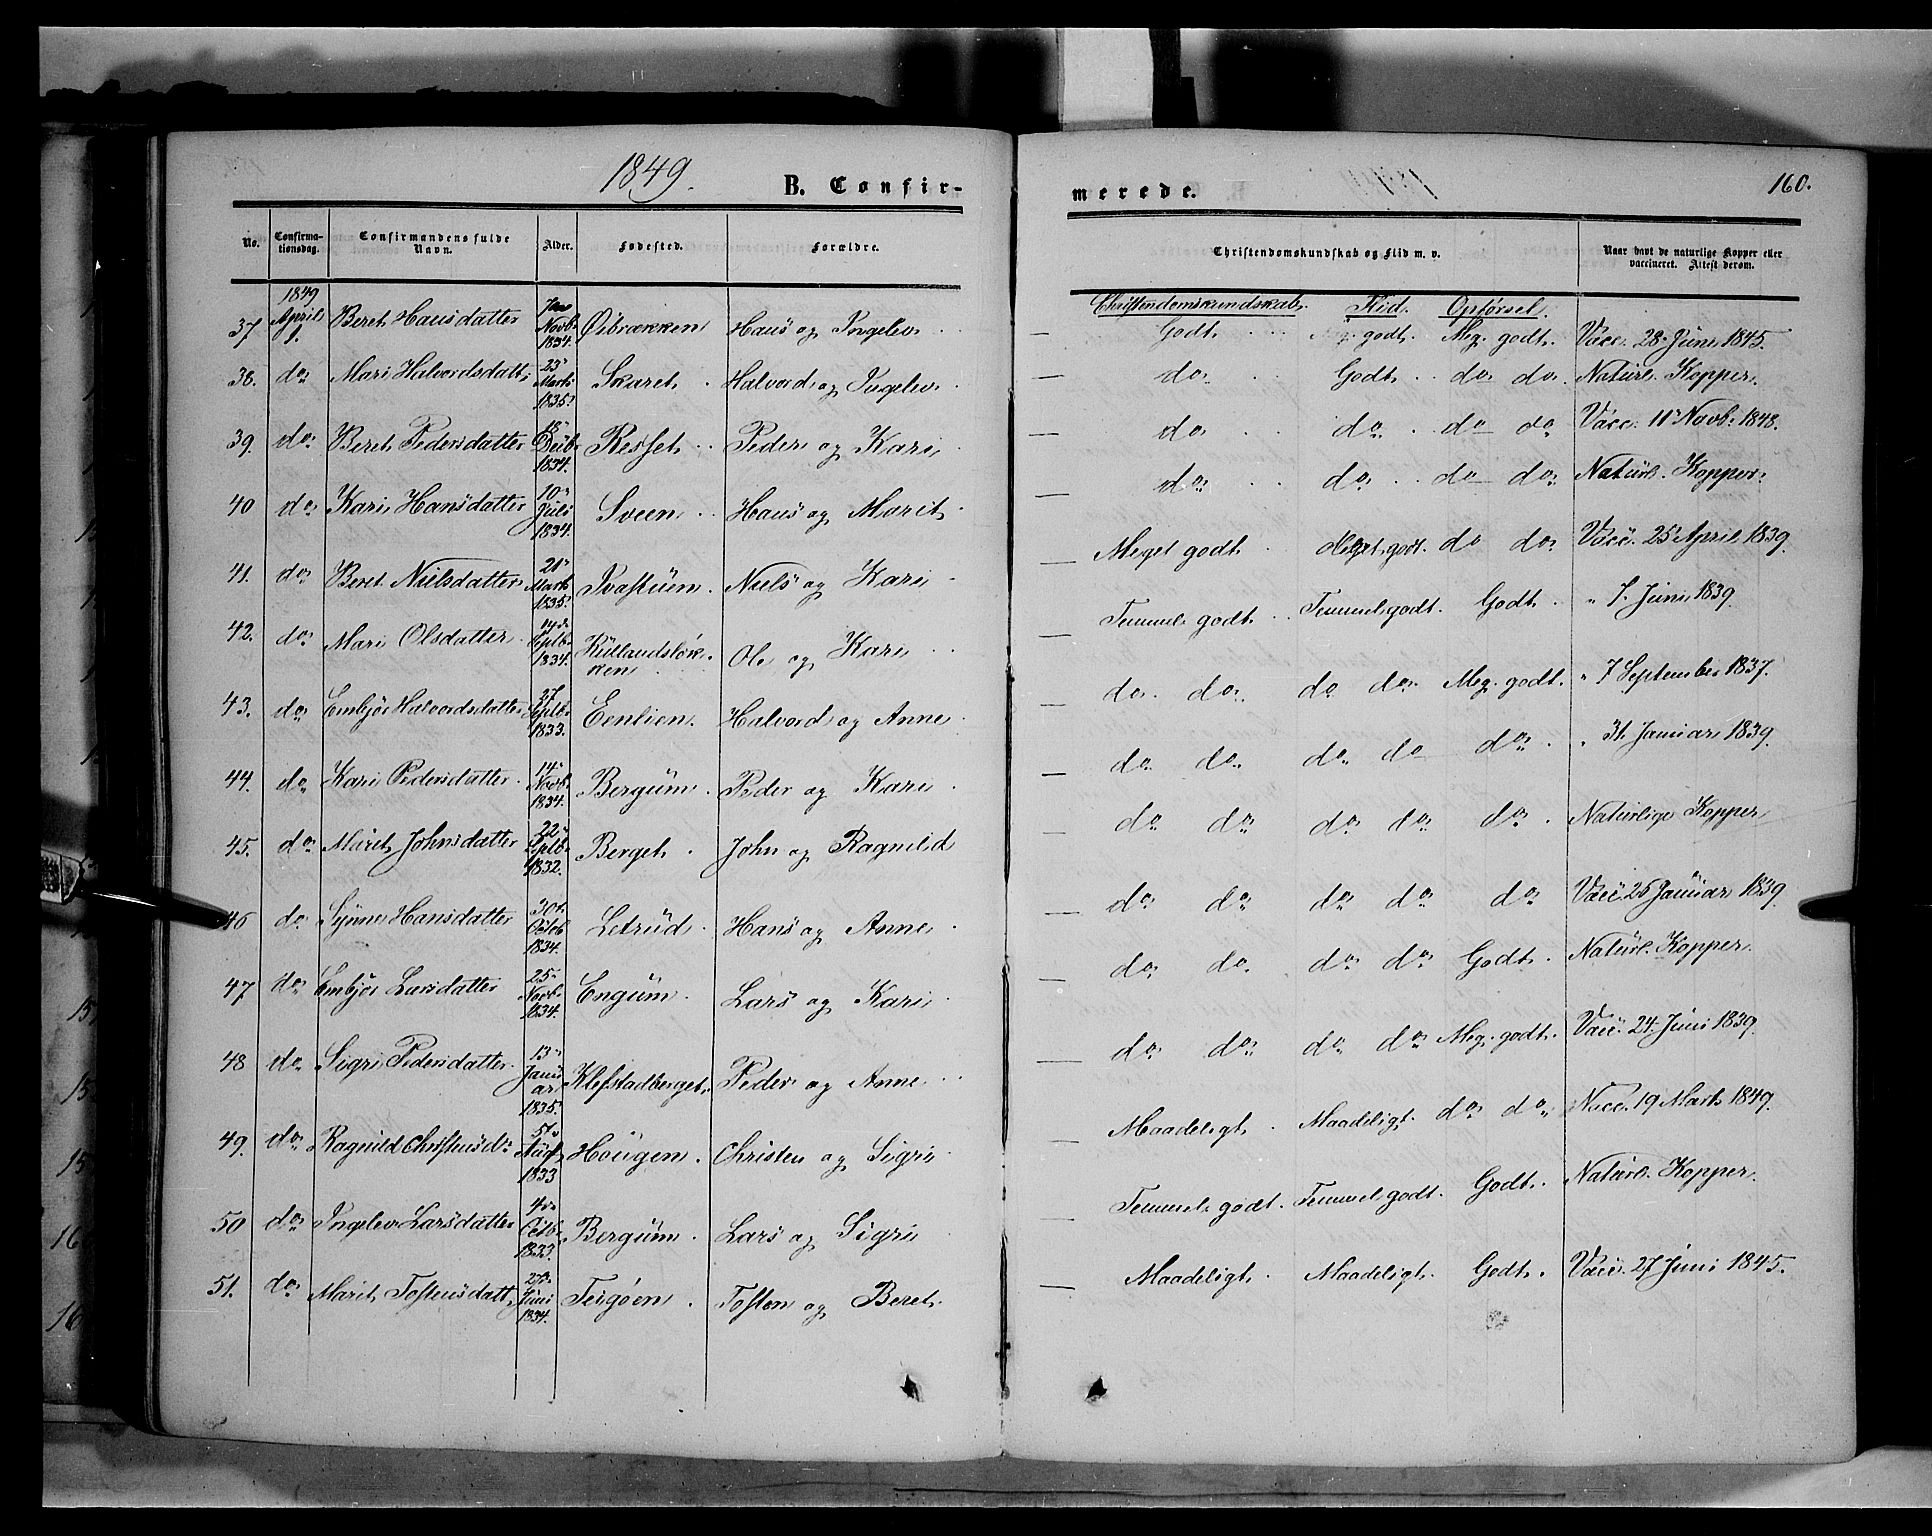 1849.
B. Confir-
merede.
160.
No. Confirma-tionsdag. Confirmandens fulde Navn. Alder. Fødested. Forældre. Christendomskundskab og Flid m. v. Naar havt de naturlige Kopper eller vaccineret. Attest derom.
Christendomskundskab. Flid. Opførsel.
37 1849 April 1. Beret Hansdatter Novb. 1834. Øibrækken Hans og Ingelev Godt Meg. godt. Meg. godt. Vacc. 28 Juni 1845.
38. do Mari Halvordsdatt. 23 Marts 1835. Skaret Halvord og Ingelev do Godt do do Naturl. Kopper.
39. do Beret Pedersdatter 18 Decb. 1834. Resset Peder og Kari do do do do Vacc. 11 Novb. 1848.
40 do Kari Hansdatter 10 Juli 1834. Sveen Hans og Marit do do do do Naturl. Kopper.
41. do Beret Nielsdatter 21 Marts 1835. Ivastuen Niels og Kari Meget godt Meget godt. do do Vacc. 25 April 1839.
42. do Mari Olsdatter 14 Septb. 1834. Rudlandsløkken Ole og Kari Temmel. godt Temmel. godt. Godt " 7. Juni 1839.
43. do Embjør Halvordsdatter 27 Septb. 1833. Eenlien Halvord og Anne do do do do Meg. godt. " 7 September 1837.
44. do Kari Pedersdatter 14 Novb. 1834. Bergum Peder og Kari do do do do do " 31. Januar 1839.
45. do Marit Johnsdatter 22 Septb. 1832. Berget John og Ragnild do do do do do Naturlige Kopper
46 do Synne Hansdatter 30 Octob 1834. Letrud Hans og Anne do do do do do Vacc. 25 Januar 1839.
47 do Embjør Larsdatter 25 Novb. 1834. Engum Lars og Kari do do do do Godt Naturl. Kopper.
48 do Sigri Pedersdatter 13 Januar 1835. Klefstadberget Peder og Anne do do do do Meg. godt. Vacc. 24. Juni 1839.
49. do Ragnild Christensd. Aug. 1833 Hougen Christen og Sigri Maadeligt Maadeligt. do do Vacc. 19 Marts 1849.
50 do Ingelev Larsdatter 4 Octb. 1833. Bergum Lars og Sigri Temmel. godt. Temmel. godt. Godt. Naturl. Kopper.
51. do Marit Tostensdatt. Juni 1834. Tesgøen Tosten og Beret Maadeligt Maadeligt. Godt. Vacc. 27 Juni 1845.